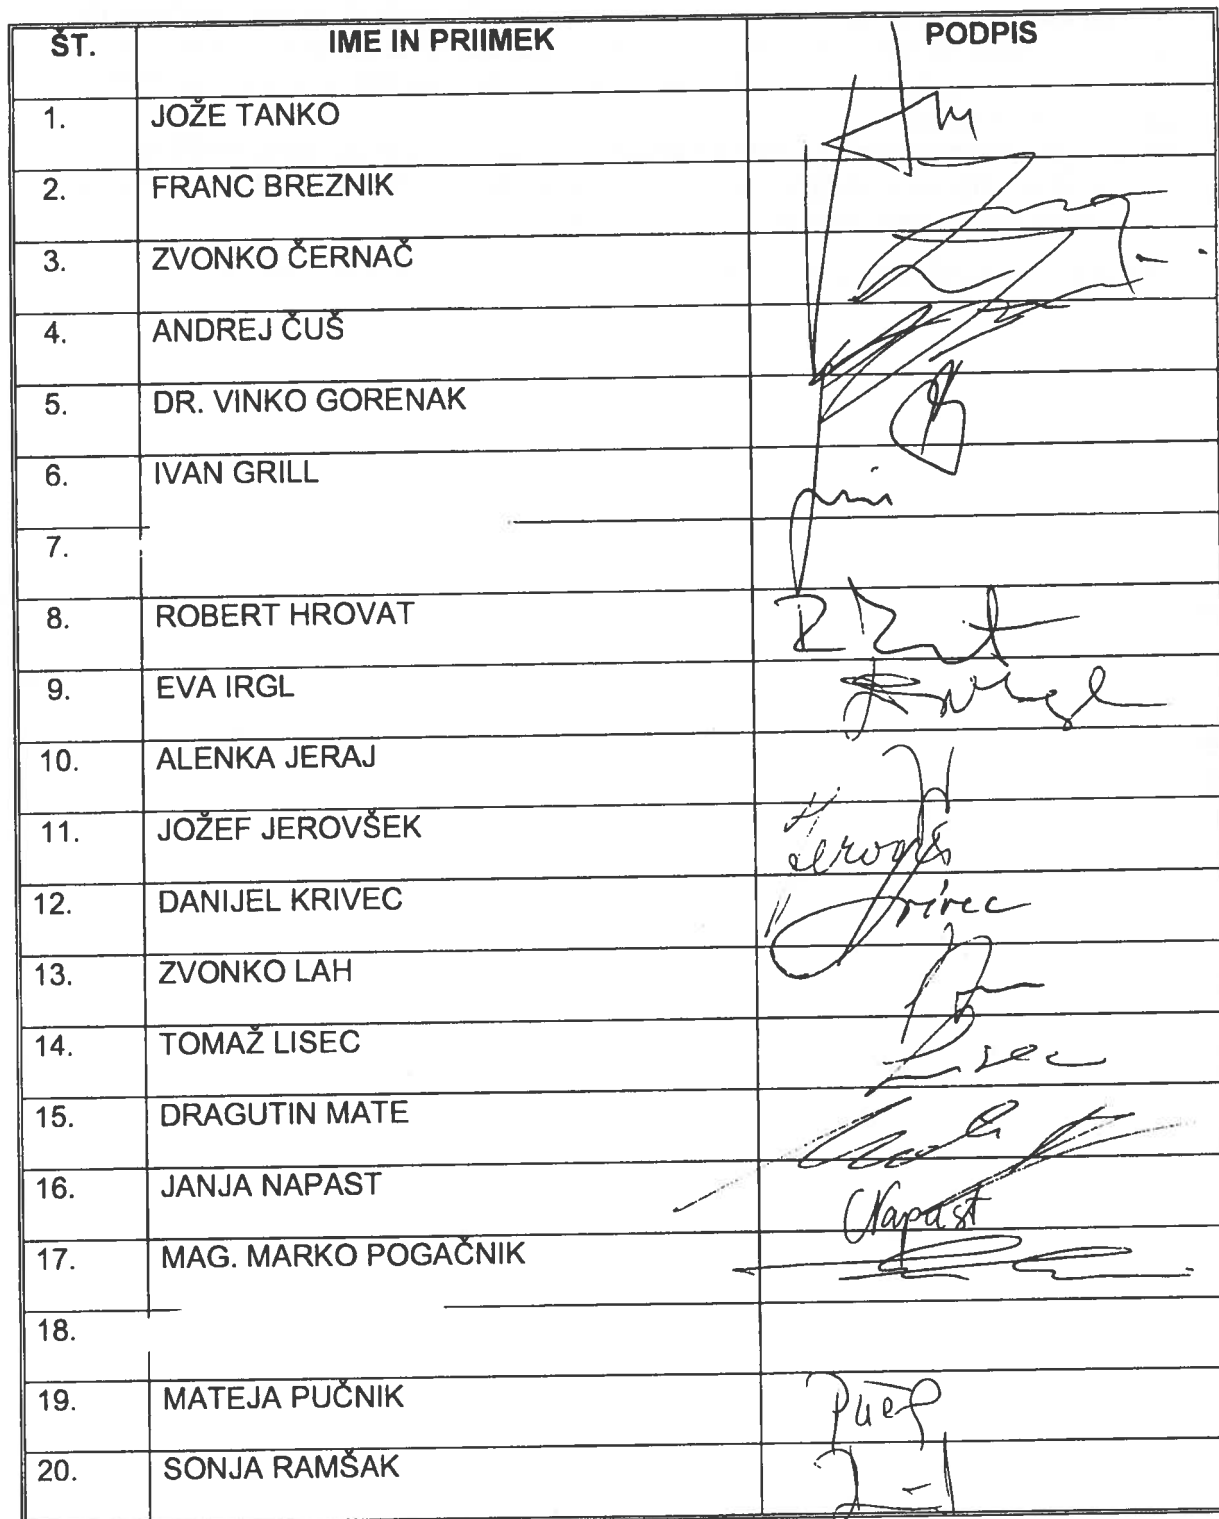 ŠT. IME IN PRIIMEK PODPIS
1. JOŽE TANKO
2. FRANC BREZNIK
3. ZVONKO ČERNAČ
4. ANDREJ ČUŠ
5. DR. VINKO GORENAK
6. IVAN GRILL
7.
8. ROBERT HROVAT
9. EVA IRGL
10. ALENKA JERAJ
11. JOŽEF JEROVŠEK
12. DANIJEL KRIVEC Krivec
13. ZVONKO LAH
14. TOMAŽ LISEC Lisec
15. DRAGUTIN MATE
16. JANJA NAPAST Napast
17. MAG. MARKO POGAČNIK
18.
19. MATEJA PUČNIK
20. SONJA RAMŠAK